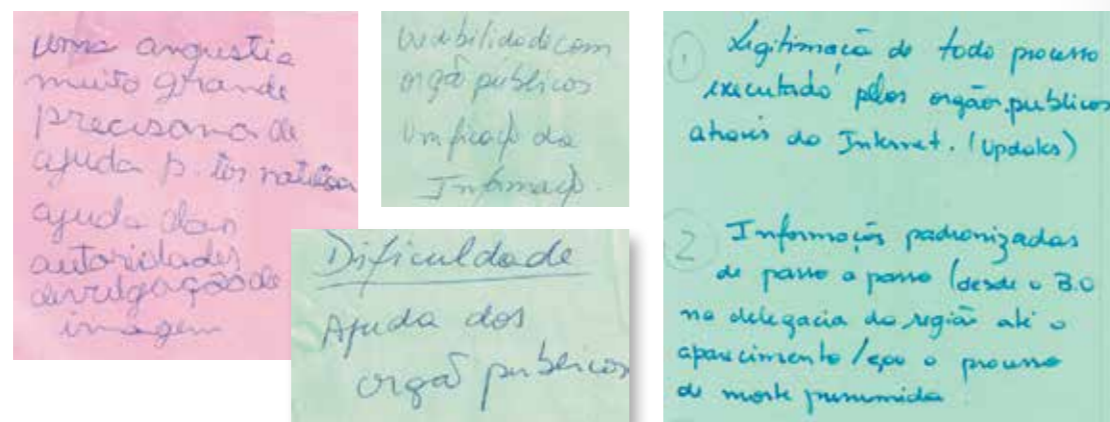 uma angustia
muito grande
precisava de
ajuda p. ter notícia
ajuda das
autoridades
devulgação de
imagem
orgão públicos
da
Informação.
Dificuldade
Ajuda dos
orgão publicos
1 Legitimação de todo processo
executado pelos orgãos publicos
através da Internet. (Updates)
2 Informações padronizadas
de passo a passo (desde o B.O
na delegacia da região até o
aparecimento / o processo
de morte presumida